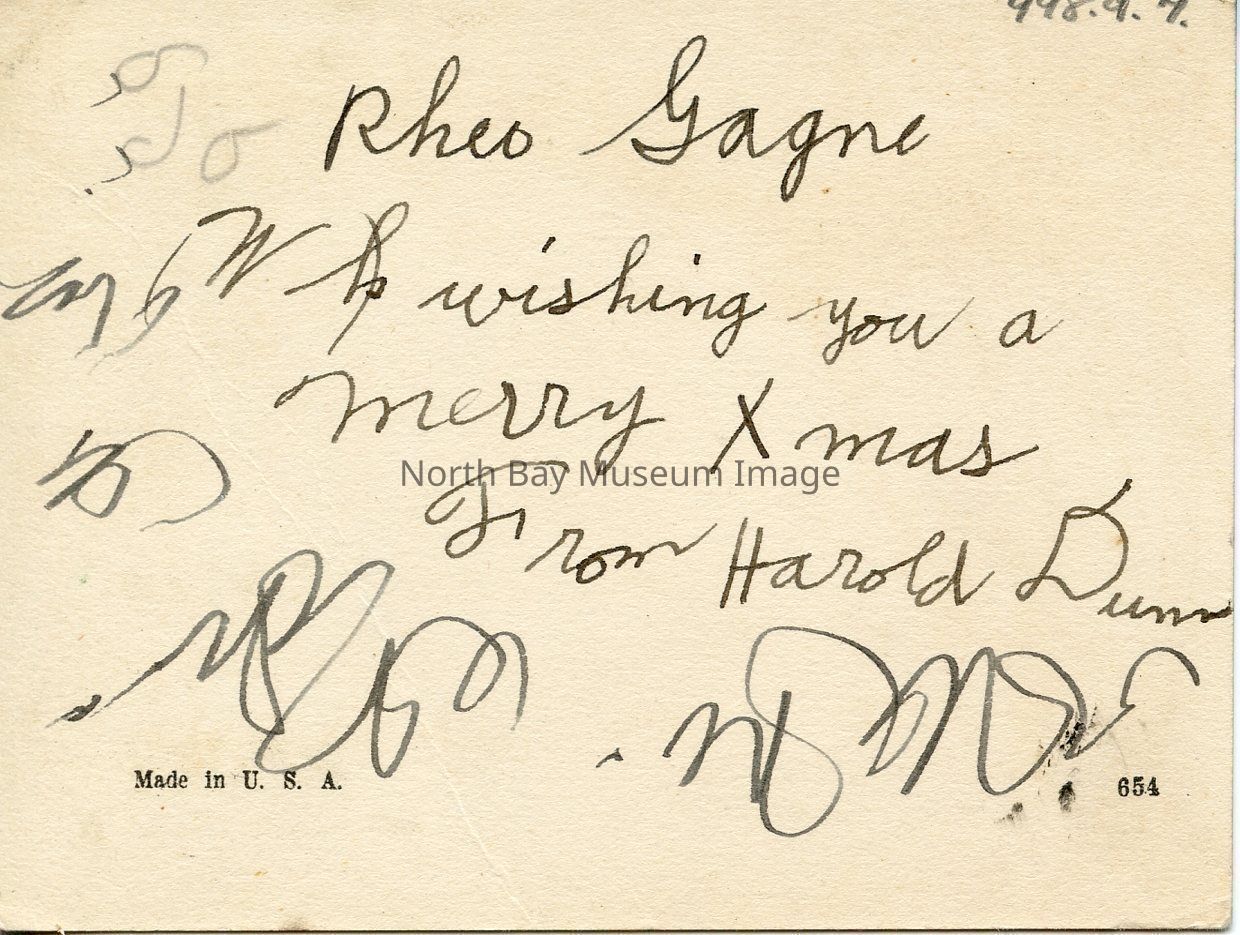 998.9.7.
Rheo Gagne
wishing you a
merry Xmas
From Harold Dunn
North Bay Museum Image
Made in U. S. A.
654